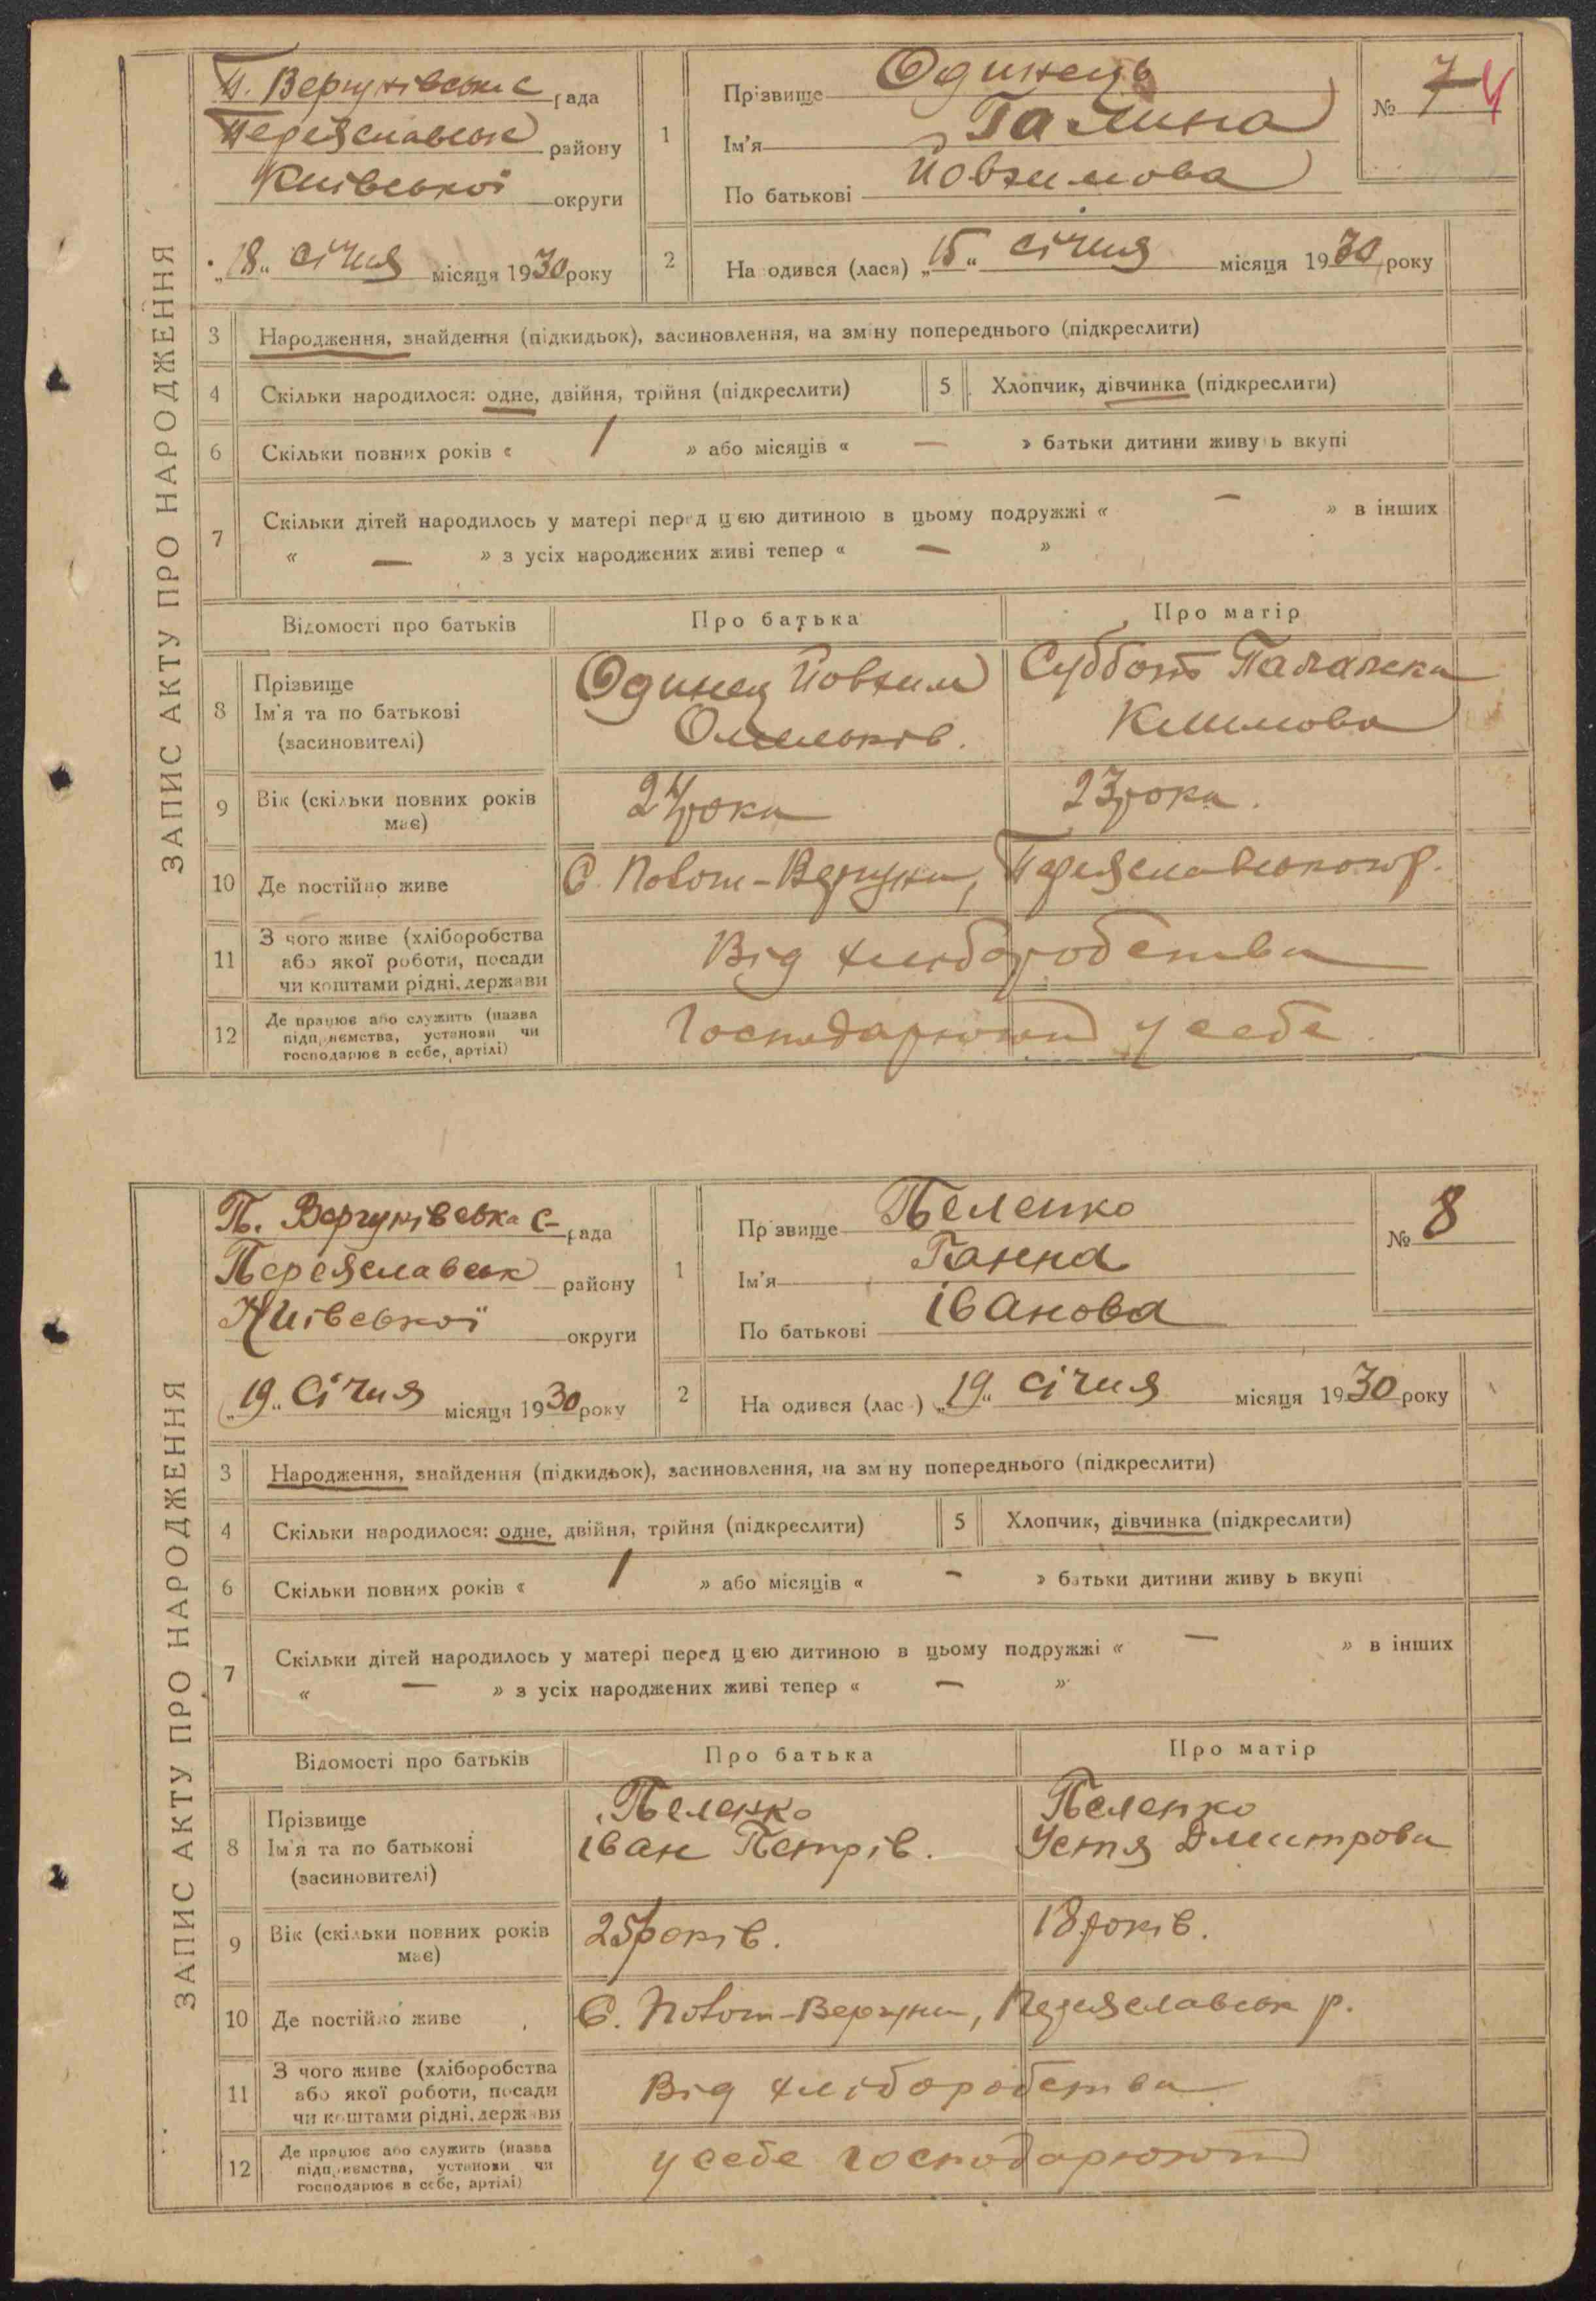 ЗАПИС АКТУ ПРО НАРОДЖЕННЯ
П. Вергунівська с рада
Переяславськ району
Київської округи
„18“ січня місяця 1930 року
1
Прізвище Одинець
Ім'я Галина
По батькові Йовхимова
№ 7 4
2
На одився (лася) „15“ січня місяця 1930 року
3 Народження, знайдення (підкидьок), засиновлення, на зміну попереднього (підкреслити)
4 Скільки народилося: одне, двійня, трійня (підкреслити)
5 Хлопчик, дівчинка (підкреслити)
6 Скільки повних років « 1 » або місяців « — » батьки дитини живу ь вкупі
7 Скільки дітей народилось у матері перед цією дитиною в цьому подружжі « — » в інших
« — » з усіх народжених живі тепер « — »
Відомості про батьків Про батька Про матір
8 Прізвище
Ім'я та по батькові
(засиновителі)
Одинец Йовхим
Омельків.
Суббот Палажка
Климова
9 Вік (скільки повних років
має)
24 роки
23 роки.
10 Де постійно живе
С. Повст-Вергуни, Переяславського р.
11 З чого живе (хліборобства
або якої роботи, посади
чи коштами рідні, держави
Від хліборобства
12 Де працює або служить (назва
підприємства, установи чи
господарює в себе, артілі)
Господарюють у себе.
ЗАПИС АКТУ ПРО НАРОДЖЕННЯ
П. Вергунівська с- рада
Переяславськ району
Київської округи
„19“ Січня місяця 1930 року
1
Пр звище Пеленко
Ім'я Ганна
По батькові Іванова
№ 8
2
На одився (лас ) „19“ січня місяця 1930 року
3 Народження, знайдення (підкидьок), засиновлення, на зм ну попереднього (підкреслити)
4 Скільки народилося: одне, двійня, трійня (підкреслити)
5 Хлопчик, дівчинка (підкреслити)
6 Скільки повних років « 1 » або місяців « – » батьки дитини живу ь вкупі
7 Скільки дітей народилось у матері перед цією дитиною в цьому подружжі « — » в інших
« — » з усіх народжених живі тепер « — »
Відомості про батьків Про батька Про матір
8 Прізвище
Ім'я та по батькові
(засиновителі)
Пеленко
Іван Петрів.
Пеленко
Устя Дмитрова
9 Вік (скільки повних років
має)
25 років.
18 років.
10 Де постійно живе
С. Повст-Вергуни, Переяславськ р.
11 З чого живе (хліборобства
або якої роботи, посади
чи коштами рідні, держави
Від хліборобства
12 Де працює або служить (назва
підприємства, установи чи
господарює в себе, артілі)
у себе господарюють